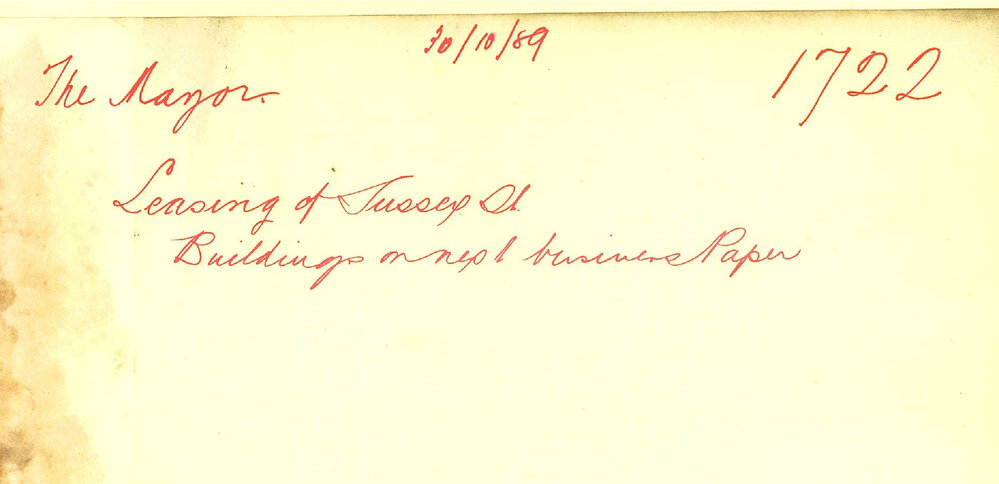 30/10/89
The Mayor.
1722
Leasing of Sussex St.
Buildings on next business Paper